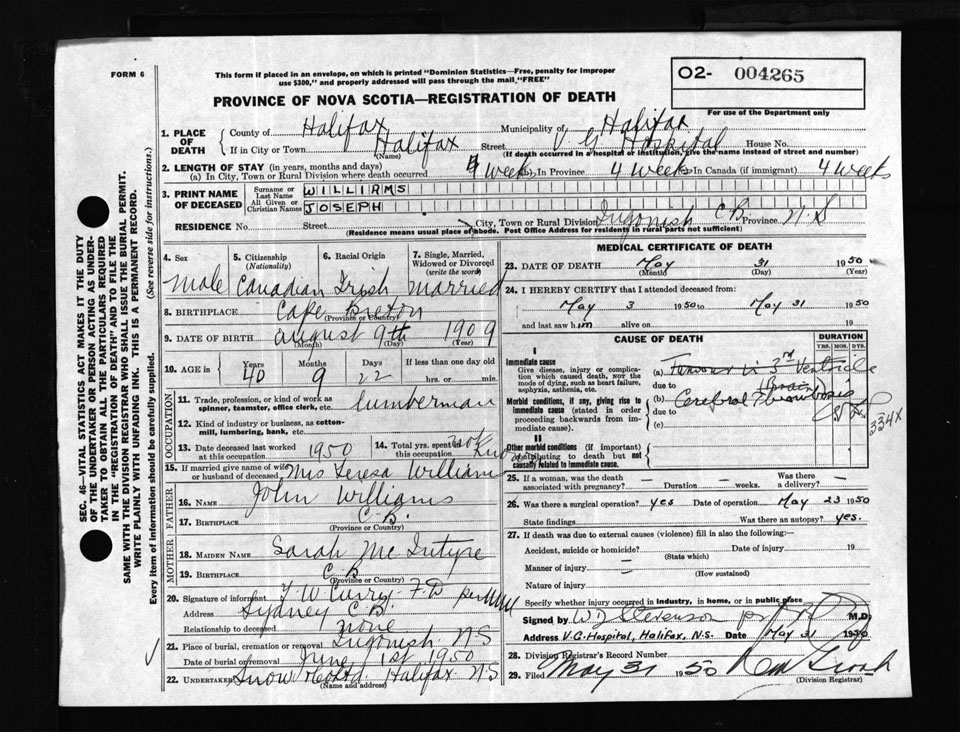 FORM 6
This form if placed in an envelope, on which is printed "Dominion Statistics—Free, penalty for improper
use $300," and properly addressed will pass through the mail "FREE"
O2- 004265
For use of the Department only
PROVINCE OF NOVA SCOTIA—REGISTRATION OF DEATH
1. PLACE OF DEATH { County of Halifax Municipality of Halifax
If in City or Town Halifax (Name) Street V G Hospital House No.
(If death occurred in a hospital or institution, give the name instead of street and number)
2. LENGTH OF STAY (in years, months and days)
(a) In City, Town or Rural Division where death occurred 4 weeks (b) In Province 4 weeks (c) In Canada (if immigrant) 4 weeks
3. PRINT NAME OF DECEASED { Surname or Last Name WILLIAMS
All Given or Christian Names JOSEPH
RESIDENCE No. Street City, Town or Rural Division Ingonish C B Province N.S
(Residence means usual place of abode. Post Office Address for residents in rural parts not sufficient)
4. Sex male
5. Citizenship (Nationality) Canadian
6. Racial Origin Irish
7. Single, Married, Widowed or Divorced (write the word) married
8. BIRTHPLACE Cape Breton
(Province or Country)
9. DATE OF BIRTH august 9th 1909
(Month) (Day)
10. AGE in { Years 40 Months 9 Days 22 If less than one day old hrs. or min.
OCCUPATION
11. Trade, profession, or kind of work as spinner, teamster, office clerk, etc. lumberman
12. Kind of industry or business, as cotton-mill, lumbering, bank, etc.
13. Date deceased last worked at this occupation 1950
14. Total yrs. spent in this occupation not Known
15. If married give name of wife or husband of deceased Mrs Teresa Williams
FATHER
16. Name John Williams
17. Birthplace C. B.
(Province or Country)
MOTHER
18. Maiden Name Sarah Mc Intyre
19. Birthplace C B
(Province or Country)
20. Signature of informant T W Curry F.D per
Address Sydney C.B.
Relationship to deceased none
21. Place of burial, cremation or removal Ingonish NS
Date of burial or removal June 1st 1950
22. Undertaker Snow Co Ltd. Halifax N S
(Name and address)
MEDICAL CERTIFICATE OF DEATH
23. DATE OF DEATH May 31 1950
(Month) (Day) (Year)
24. I HEREBY CERTIFY that I attended deceased from:
May 3 1950 to May 31 1950
and last saw him alive on 19
CAUSE OF DEATH
DURATION
YRS. MOS. DYS.
I
Immediate cause
Give disease, injury or complication which caused death, not the mode of dying, such as heart failure, asphyxia, asthenia, etc.
(a) Tumour in 3rd Ventricle
due to (brain)
Morbid conditions, if any, giving rise to immediate cause (stated in order proceeding backwards from immediate cause).
(b) Cerebral Thrombosis
due to
(c)
334X
II
Other morbid conditions (if important) contributing to death but not causally related to immediate cause.
25. If a woman, was the death associated with pregnancy? — Duration — weeks. Was there a delivery? —
26. Was there a surgical operation? yes Date of operation May 23 1950
State findings Was there an autopsy? yes.
27. If death was due to external causes (violence) fill in also the following:
Accident, suicide or homicide? — Date of injury 19
(State which)
Manner of injury —
(How sustained)
Nature of injury —
Specify whether injury occurred in industry, in home, or in public place
Signed by W D Stevenson M.D.
Address V.G. Hospital, Halifax, N.S. Date May 31 1950
28. Division Registrar's Record Number
29. Filed May 31 1950
(Division Registrar)
SEC. 46—VITAL STATISTICS ACT MAKES IT THE DUTY
OF THE UNDERTAKER OR PERSON ACTING AS UNDER-
TAKER TO OBTAIN ALL THE PARTICULARS REQUIRED
IN THE "REGISTRATION OF DEATH" AND TO FILE THE
SAME WITH THE DIVISION REGISTRAR WHO SHALL ISSUE THE BURIAL PERMIT.
WRITE PLAINLY WITH UNFADING INK. THIS IS A PERMANENT RECORD.
Every item of information should be carefully supplied. (See reverse side for instructions.)